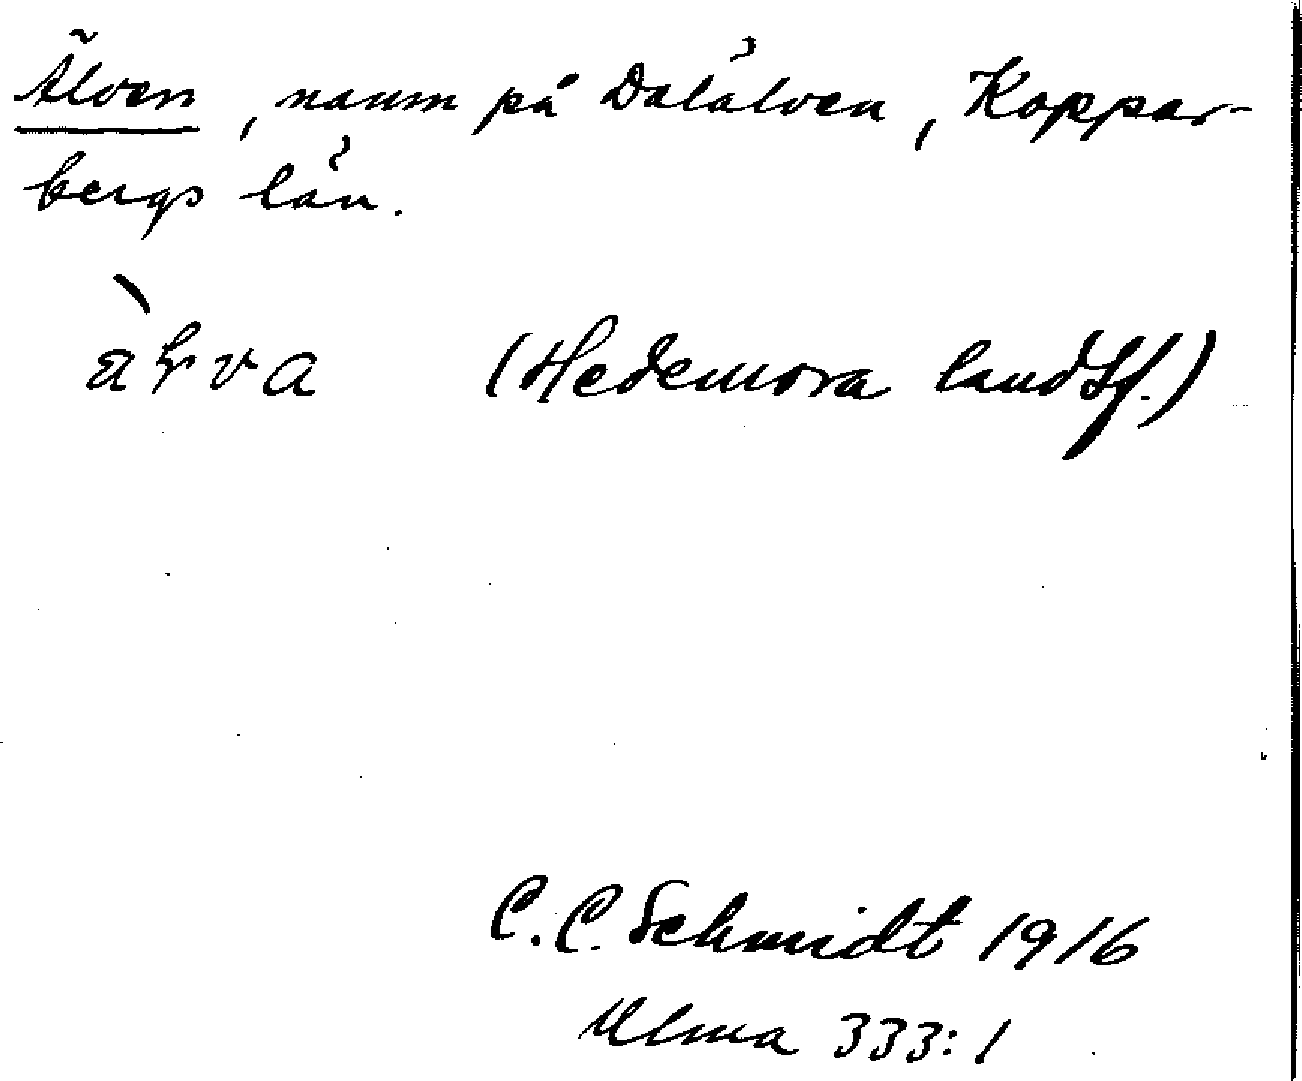 Älven, namn på Dalälven, Koppar-
bergs län.
(Hedemora landsf.)
C. C. Schmidt 1916
Ulma 333:1